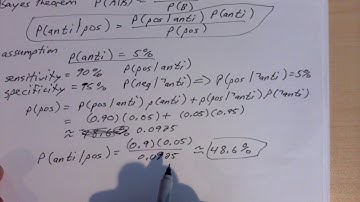 Bayes theorem P(A|B) = P(B)
P(anti|pos) = P(pos|anti) P(anti) / P(pos)
assumption P(anti) = 5%
sensitivity = 90% P(pos|anti)
specificity = 95% P(neg|¬anti) => P(pos|¬anti) = 5%
P(pos) = P(pos|anti) p(anti) + p(pos|¬anti) P(¬anti)
= (0.90)(0.05) + (0.05)(0.95)
≈ 0.0925
P(anti|pos) = (0.9)(0.05) / 0.0925 ≈ 48.6%